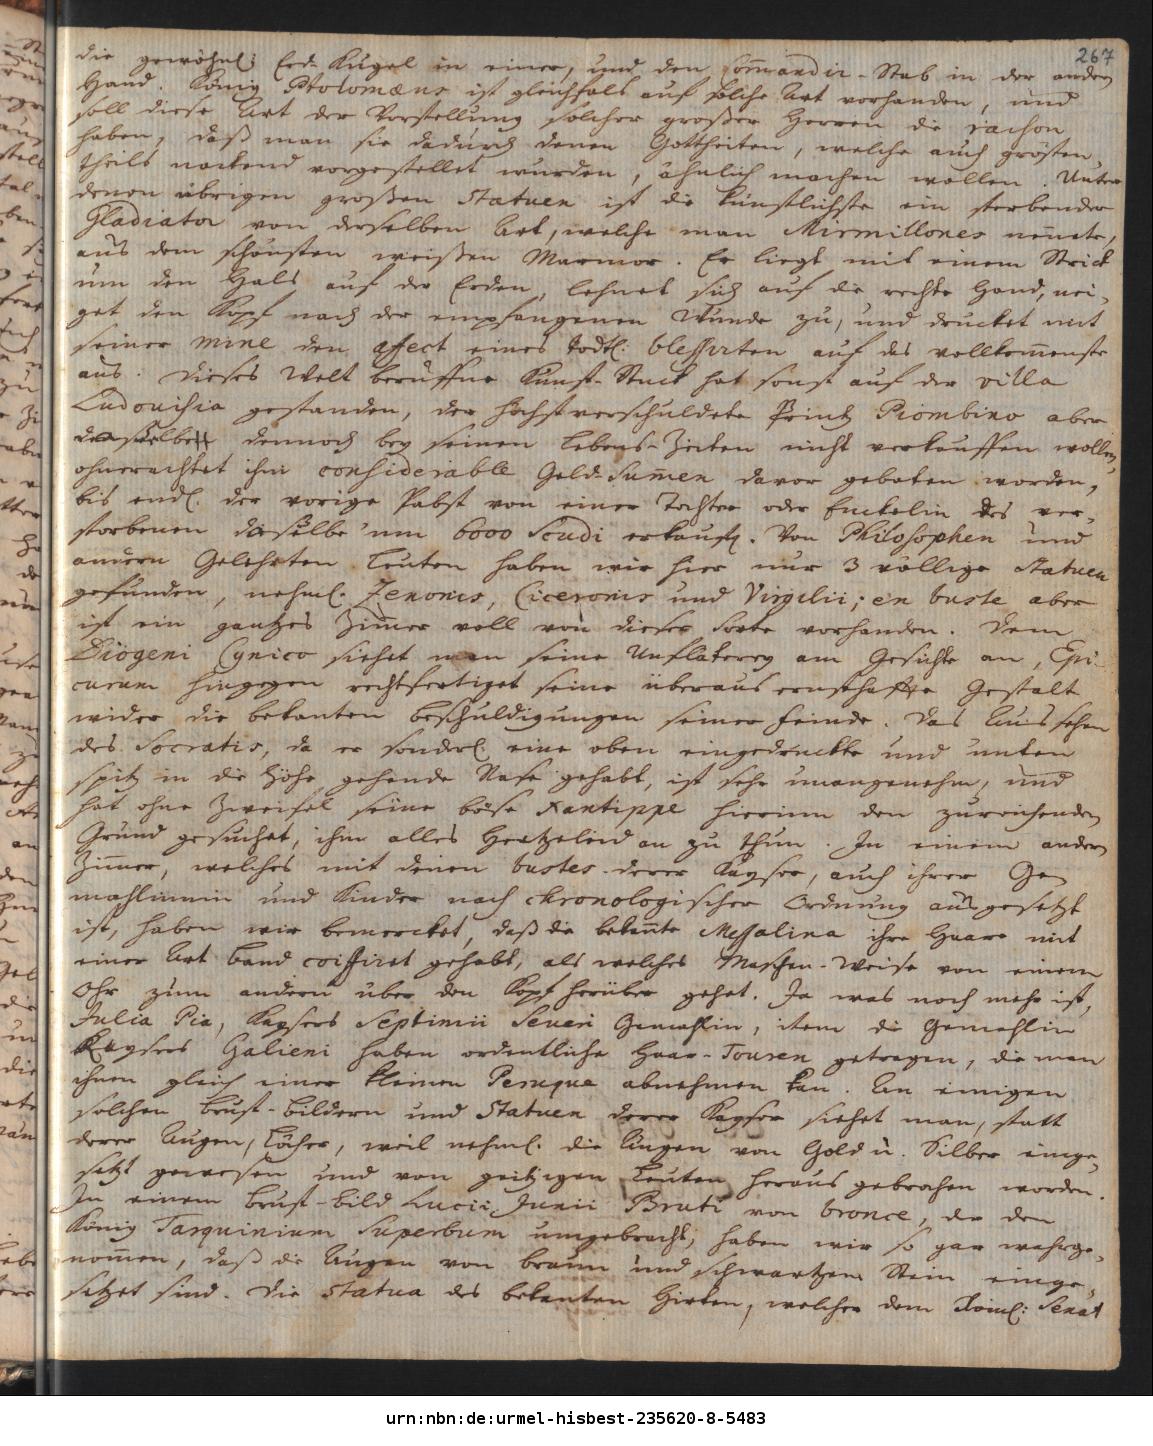 267
die gewöhnl: Erd-Kugel in einer, und den Com̄andir-Stab in der andern
Hand. König Ptolomæus ist gleichfals auf solche Art vorhanden, und
soll diese Art der Vorstellung solcher großer Herren die raison
haben, daß man sie dadurch denen Gottheiten, welche auch grösten,
theils nackend vorgestellet wurden, ähnlich machen wollen. Unter
denen übrigen großen Statuen ist die künstlichste ein sterbender
Gladiator von derselben Art, welche man Mirmillones nen̄ete,
aus dem schönsten weißen Marmor. Er liegt mit einem Strick
um den Hals auf der Erden, lehnet sich auf die rechte Hand, nei,
get den Kopf nach der empfangenen Wunde zu, und drucket mit
seiner mine den affect eines tödtl: blessirten auf das vollkom̄enste
aus. Dieses Welt beruffne Kunst-Stück hat sonst auf der villa
Ludouisia gestanden, der höchstverschuldete Printz Piombino aber
dasselbe dennoch bey seinen Lebens-Zeiten nicht verkauffen wollen,
ohnerachtet ihm considerable Geld-Sum̄en davor geboten worden,
bis endl. der vorige Pabst von einer Tochter oder Enckelin des ver,
storbenen dasselbe um 6000 Scudi erkauft. Von Philosophen und
andern Gelehrten Leuten haben wir hier nur 3 völlige Statuen
gefunden, nehml. Zenonis, Ciceronis und Virgilii; en buste aber
ist ein gantzes Zim̄er voll von dieser Sorte vorhanden. Dem
Diogeni Cynico siehet man seine Unfläterey am Gesichte an, Epi-
curum hingegen rechtfertiget seine überaus ernsthaffte Gestalt
wider die bekanten Beschuldigungen seiner Feinde. Das Aussehen
des Socratis, da er sonderl. eine oben eingedruckte und unten
spitz in die Höhe gehende Nase gehabt, ist sehr unangenehm, und
hat ohne Zweifel seine böse Xantippe hierinn den zureichenden
Grund gesuchet, ihm alles Hertzeleid an zu thun. In einem andern
Zim̄er, welches mit denen bustes derer Kayser, auch ihrer Ge,
mahlinnin und Kinder nach chronologischer Ordnung ausgesetzt
ist, haben wir bemercket, daß die bekan̄te Messalina ihre Haare mit
einer Art Band coiffiret gehabt, als welches Maschen-Weise von einem
Ohr zum andern über den Kopf herüber gehet. Ja was noch mehr ist,
Julia Pia, Kaysers Septimii Seueri Gemahlin, item die Gemahlin
Kaysers Galieni haben ordentliche Haar-Touren getragen, die man
ihnen gleich einer kleinen Peruque abnehmen kan. An einigen
solchen Brust-Bildern und Statuen derer Kayser siehet man, statt
derer Augen, Löcher, weil nehml. die Augen von Gold u. Silber einge,
setzt gewesen und von geitzigen Leuten heraus gebrochen worden.
In einem Brust-Bild Lucii Junii Bruti von bronce, der den
König Tarquinium Superbum umgebracht, haben wir so gar wahrge,
nom̄en, daß die Augen von braun und schwartzem Stein einge,
setzet sind. Die Statua des bekanten Hirten, welcher dem Röml: Senat
urn:nbn:de:urmel-hisbest-235620-8-5483